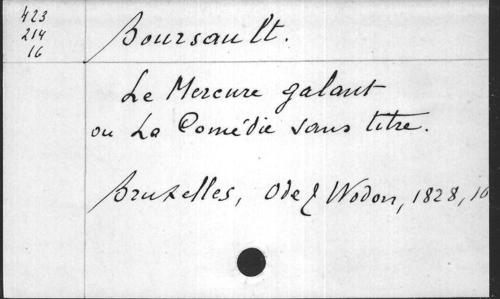 423
214
16
Boursault.
Le Mercure galant
ou La Comédie sans titre.
Bruxelles, Ode & Wodon, 1828, 16